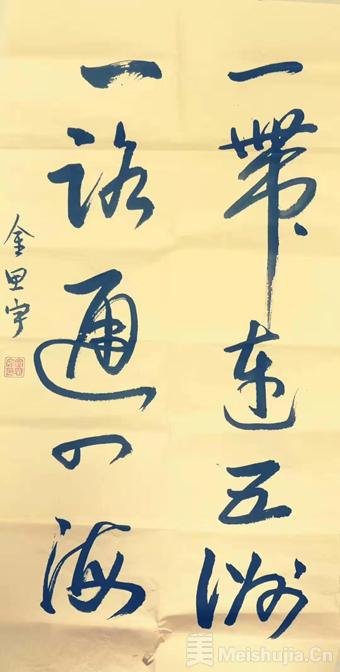 一帶連五洲
一路通四海
金思宇
美 Meishujia.Cn